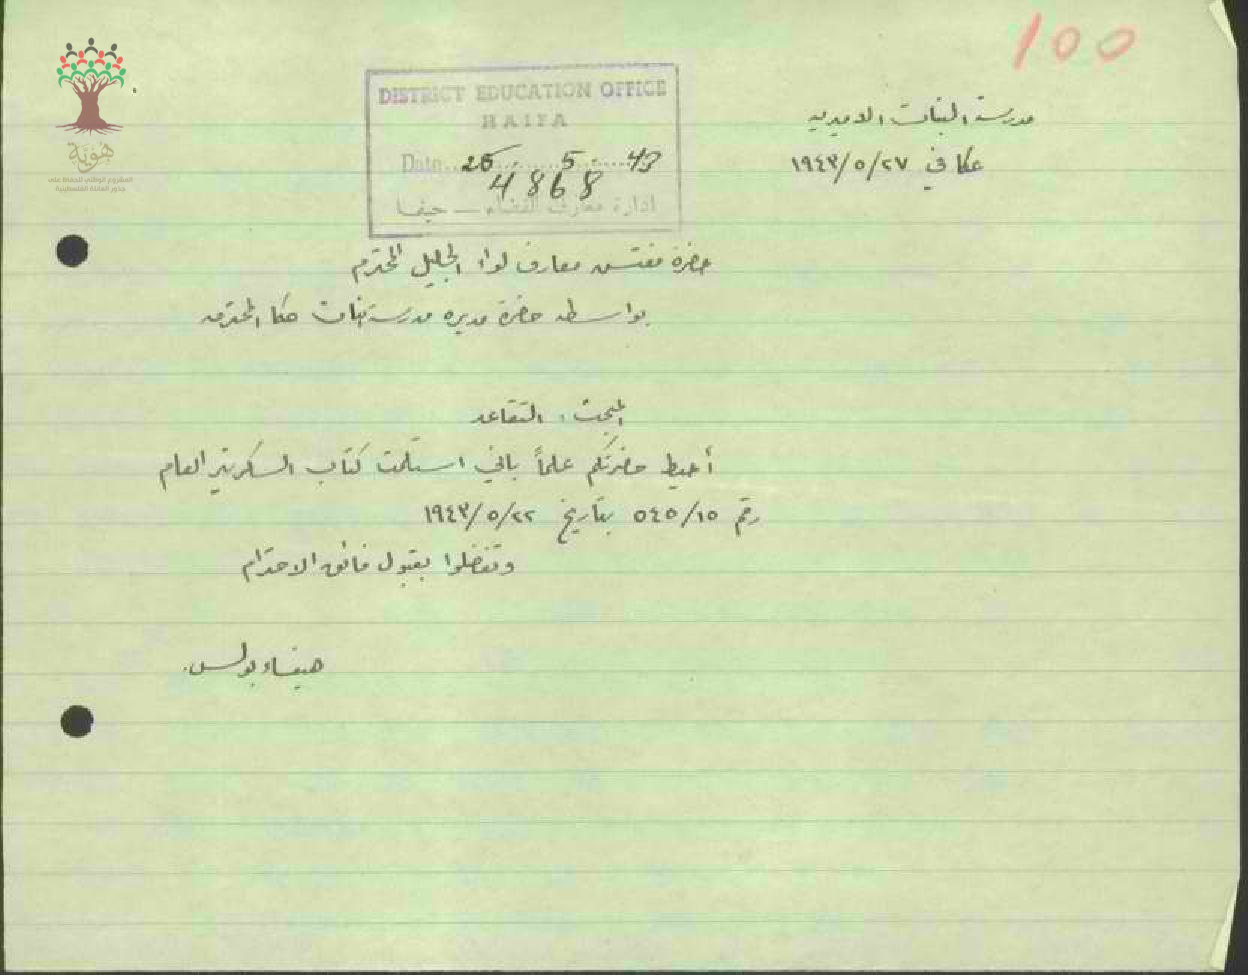 100
مدرسة البنات الاميرية
عكا في ٢٧/٥/١٩٤٣
DISTRICT EDUCATION OFFICE
HAIFA
Date 25 5 43
4868
ادارة معارف القضاء — حيفا
هوية
المشروع الوطني للحفاظ على
جذور العائلة الفلسطينية
حضرة مفتش معارف لواء الجليل المحترم
بواسطة حضرة مديرة مدرسة بنات عكا المحترمة
المبحث: التقاعد
أحيط حضرتكم علماً باني استلمت كتاب السكرتير العام
رقم ٥٤٥/١٥ بتاريخ ٢٢/٥/١٩٤٣
وتفضلوا بقبول فائق الاحترام
هيفاء بولس.